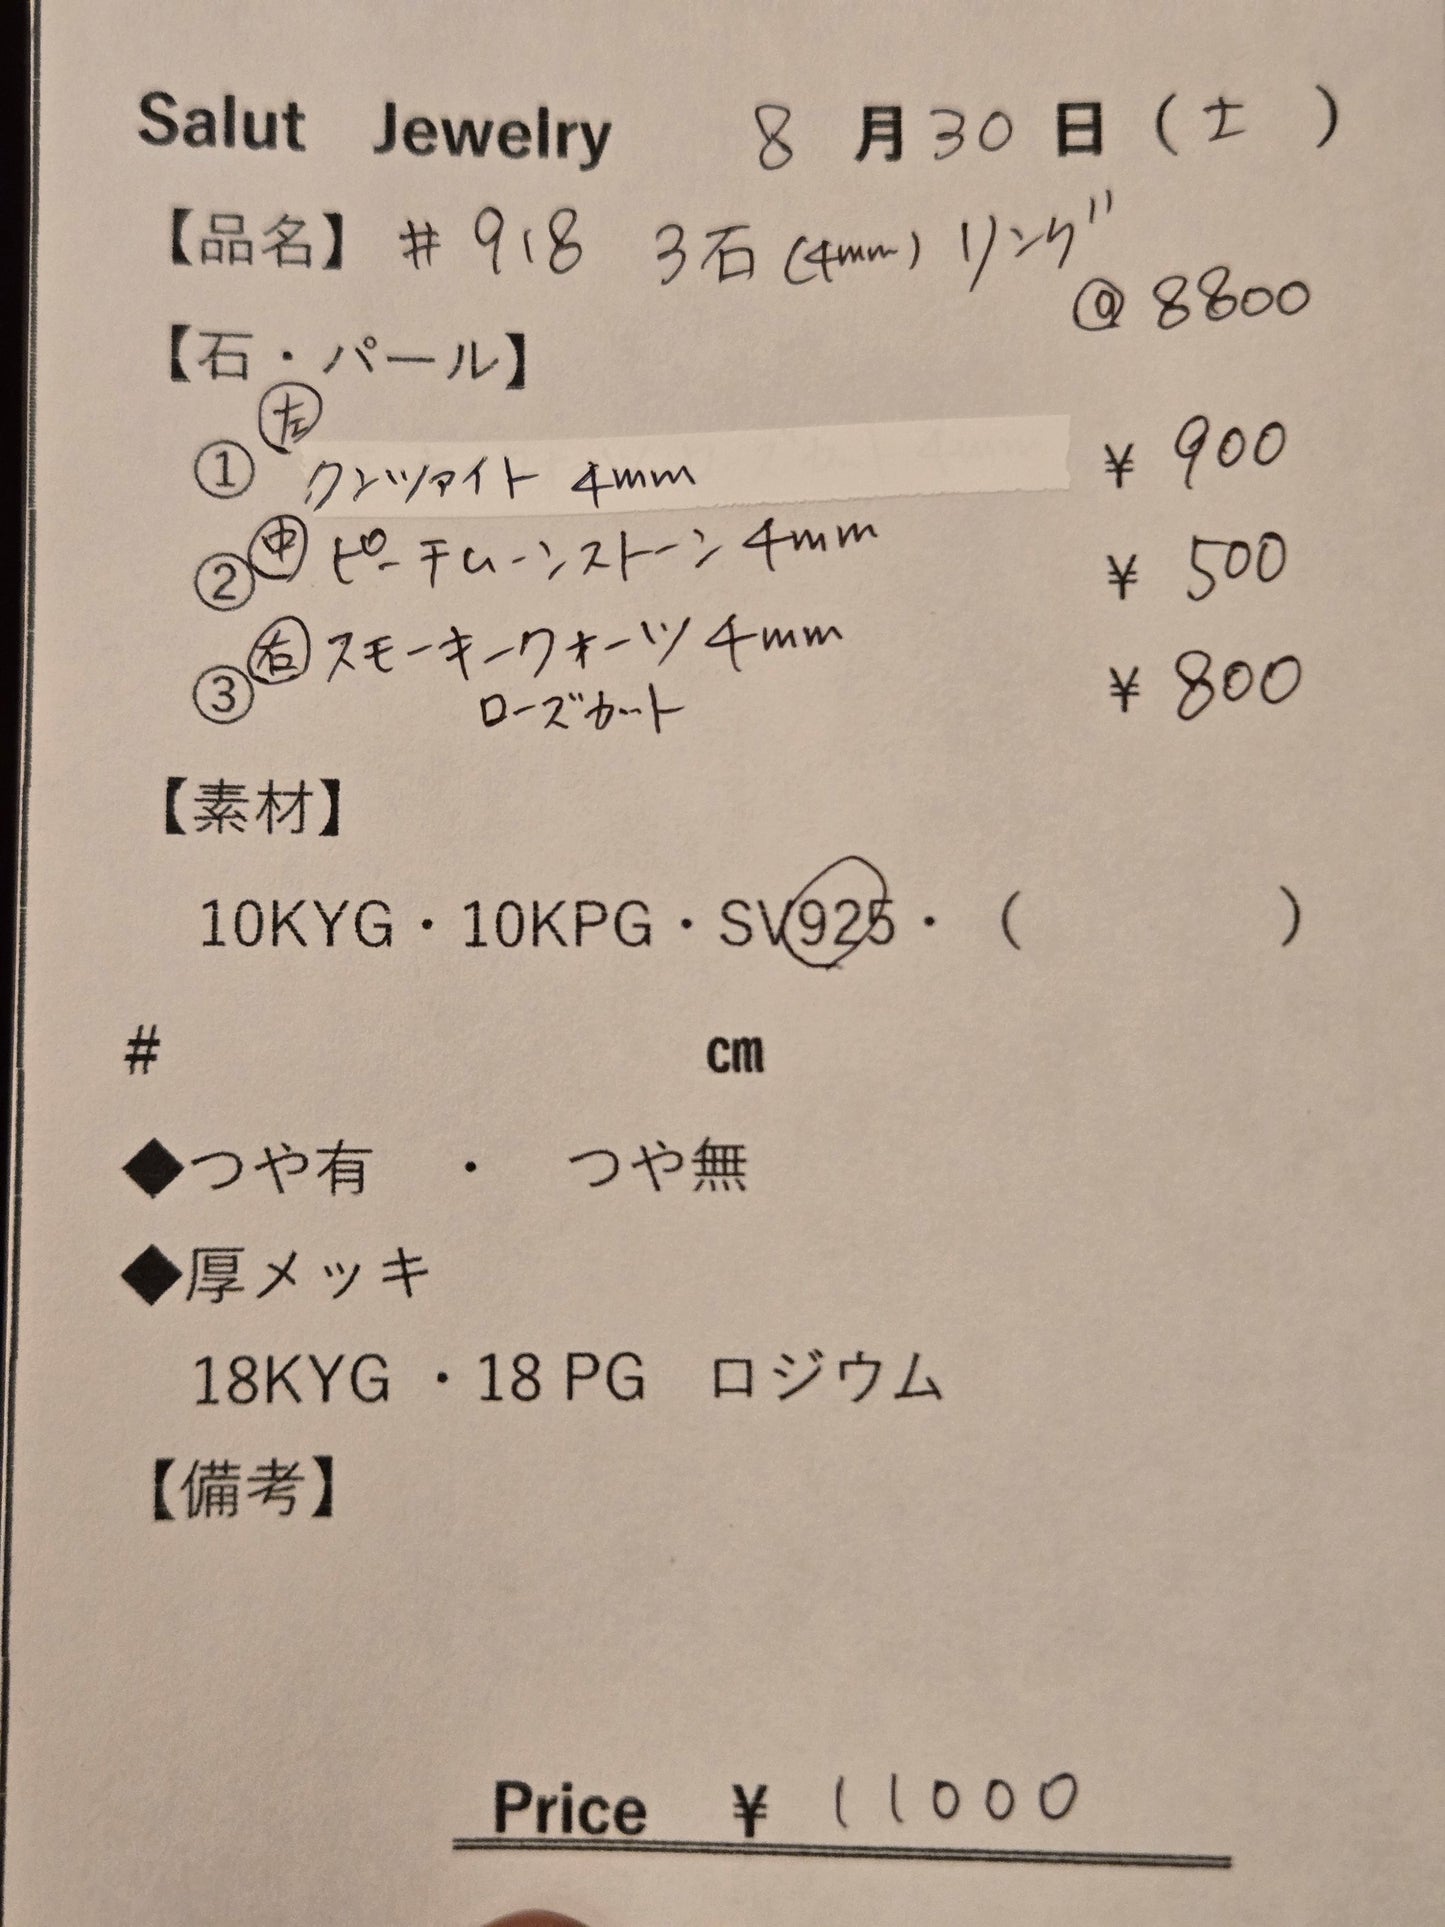 Salut Jewelry 8月30日(土)
【品名】#918 3石(4mm)リング
@8800
【石・パール】
① 左 クンツァイト 4mm ¥900
② 中 ピーチムーンストーン4mm ¥500
③ 右 スモーキークォーツ4mm ¥800
ローズカット
【素材】
10KYG・10KPG・SV925・( )
# cm
◆つや有 ・ つや無
◆厚メッキ
18KYG ・18 PG ロジウム
【備考】
Price ¥ 11000